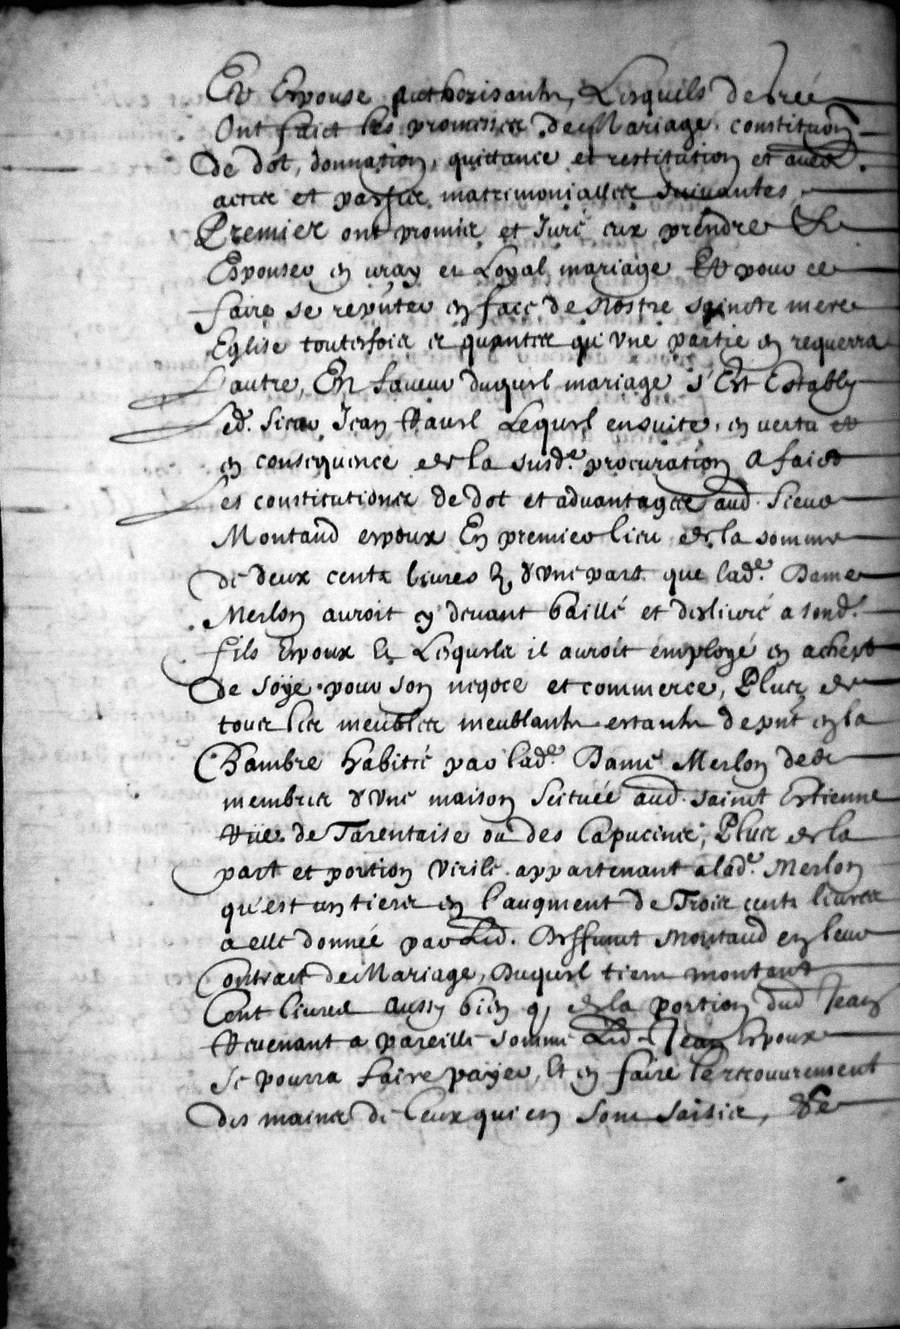 Et Espouse authorisante, Lesquels de gré
Ont faict les promesses de Mariage, constitu[ti]on
De dot, donnation, quittance et restitution et aud.
actes et pastes matrimonialles suivantes,
Premier ont promis et Juré eux prendre &
Espouser en vray et Loyal mariage Et pour ce
faire se reputer en face de Nostre saincte mere
Eglise toutesfois et quantes qu'une partie en requerra
L'autre, En faveur duquel mariage s'Est Estably
led. sieur Jean Ravel Lequel ensuite, en vertu et
en consequence de la susd.e procuration a faict
Les constitutions de dot et advantages aud. Sieur
Montaud espoux En premier lieu de la somme
de deux cents livres d'une part que lad.e Dame
Merlon auroit cy devant baillé et deslivré a sond.
fils Espoux & Lesquels il auroit employé en achept
De soye pour son negoce et commerce, Plus de
tous les meubles meublants estants de pnt en la
Chambre habitée par lad.e Dame Merlon de
membres d'une maison scituée aud. sainct Estienne
Rüe de Tarentaise ou des Capucins, Plus de la
part et portion virile appartenant a lad.e Merlon
qu'est un tiers en l'augment de Trois cents livres
a elle donnée par Led. Deffunct Montaud en leur
Contract de Mariage, Duquel tiers montant
Cent livres aussy bien q, de la portion dud. Jean
Revenant a pareille somme Led. Jean Espoux
Se pourra faire payer, Et en faire le recouvrement
des mains de Ceux qui en sont saisis, &